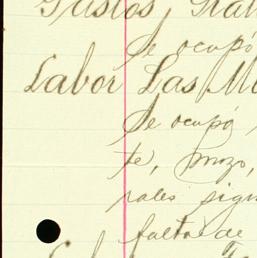 Gastos, Gra
Se ocupó
Labor Las M
Se ocupó
te, mozo,
rales sign
falta de